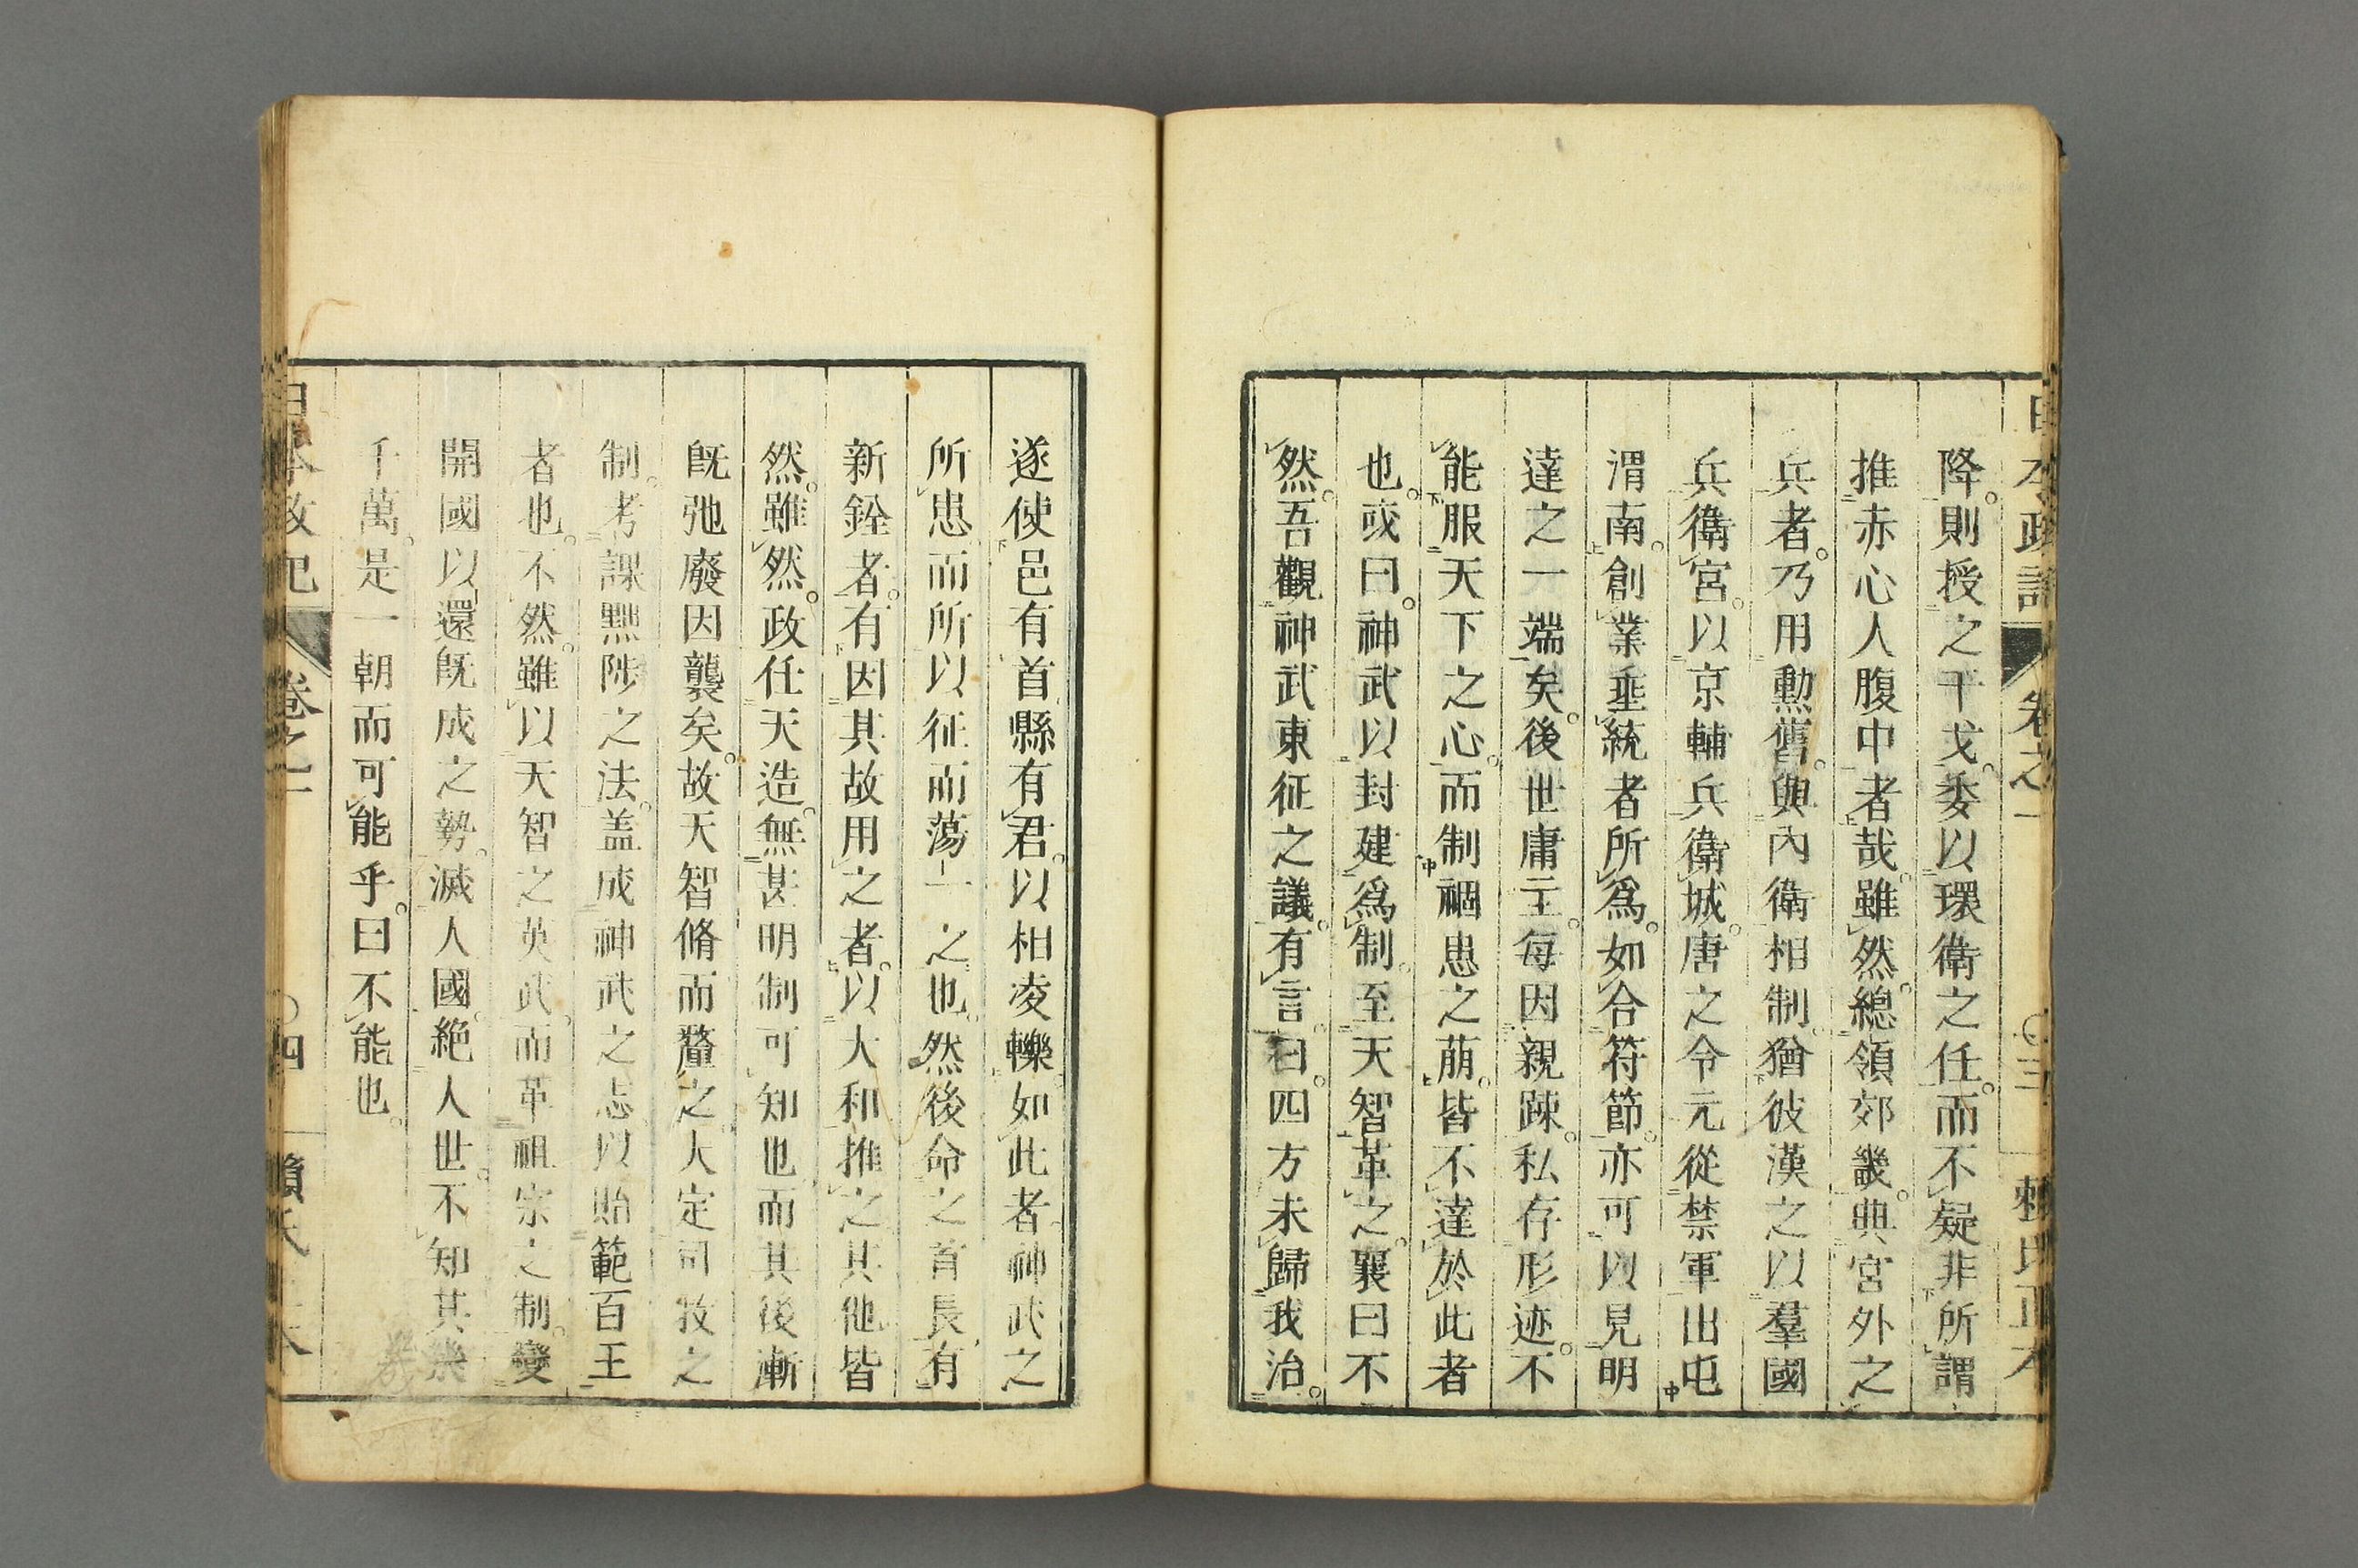 日本政記 卷之一 ○三 賴氏正本
降。則授之干戈。委以環衛之任。而不疑。非所謂
推赤心人腹中者哉。雖然。總領郊畿。典宮外之
兵者。乃用勳舊。與內衛相制。猶彼漢之以羣國
兵衛宮。以京輔兵衛城。唐之令元從禁軍出屯
渭南。創業垂統者所爲。如合符節。亦可以見明
達之一端矣。後世庸主。每因親疎。私存形迹。不
能服天下之心。而制禍患之萠。皆不達於此者
也。或曰。神武以封建爲制。至天智革之。襄曰不
然。吾觀神武東征之議。有言。曰。四方未歸我治。
遂使邑有首縣有君。以相凌轢。如此者。神武之
所患。而所以征而蕩一之也。然後命之首長。有
新銓者。有因其故用之者。以大和推之。其他皆
然。雖然。政任天造。無甚明制可知也。而其後漸
既弛廢因襲矣。故天智脩而釐之。大定司牧之
制。考課黜陟之法。盖成神武之志。以貽範百王
者也。不然。雖以天智之英武。而革祖宗之制。變
開國以還既成之勢。滅人國。絶人世。不知其幾
千萬。是一朝而可能乎。曰不能也。
日本政記 卷之一 ○四 賴氏正本